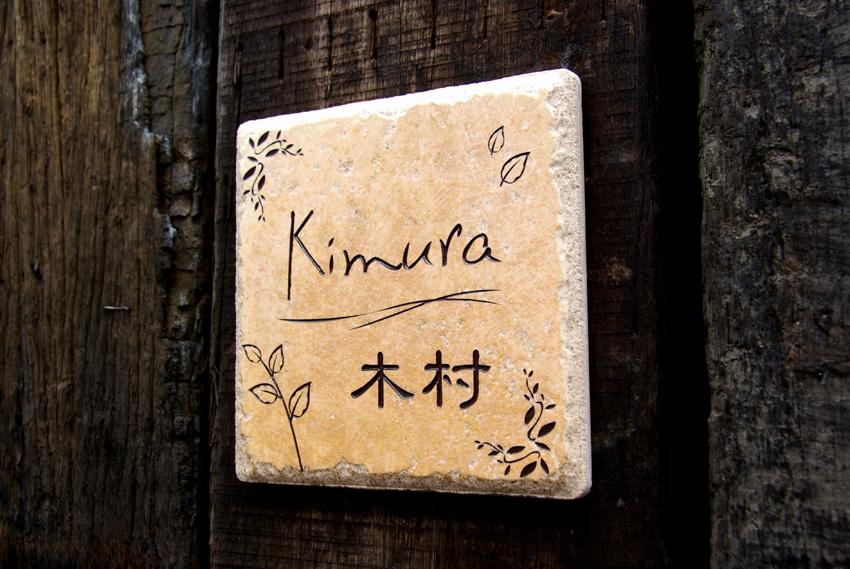 Kimura
木村